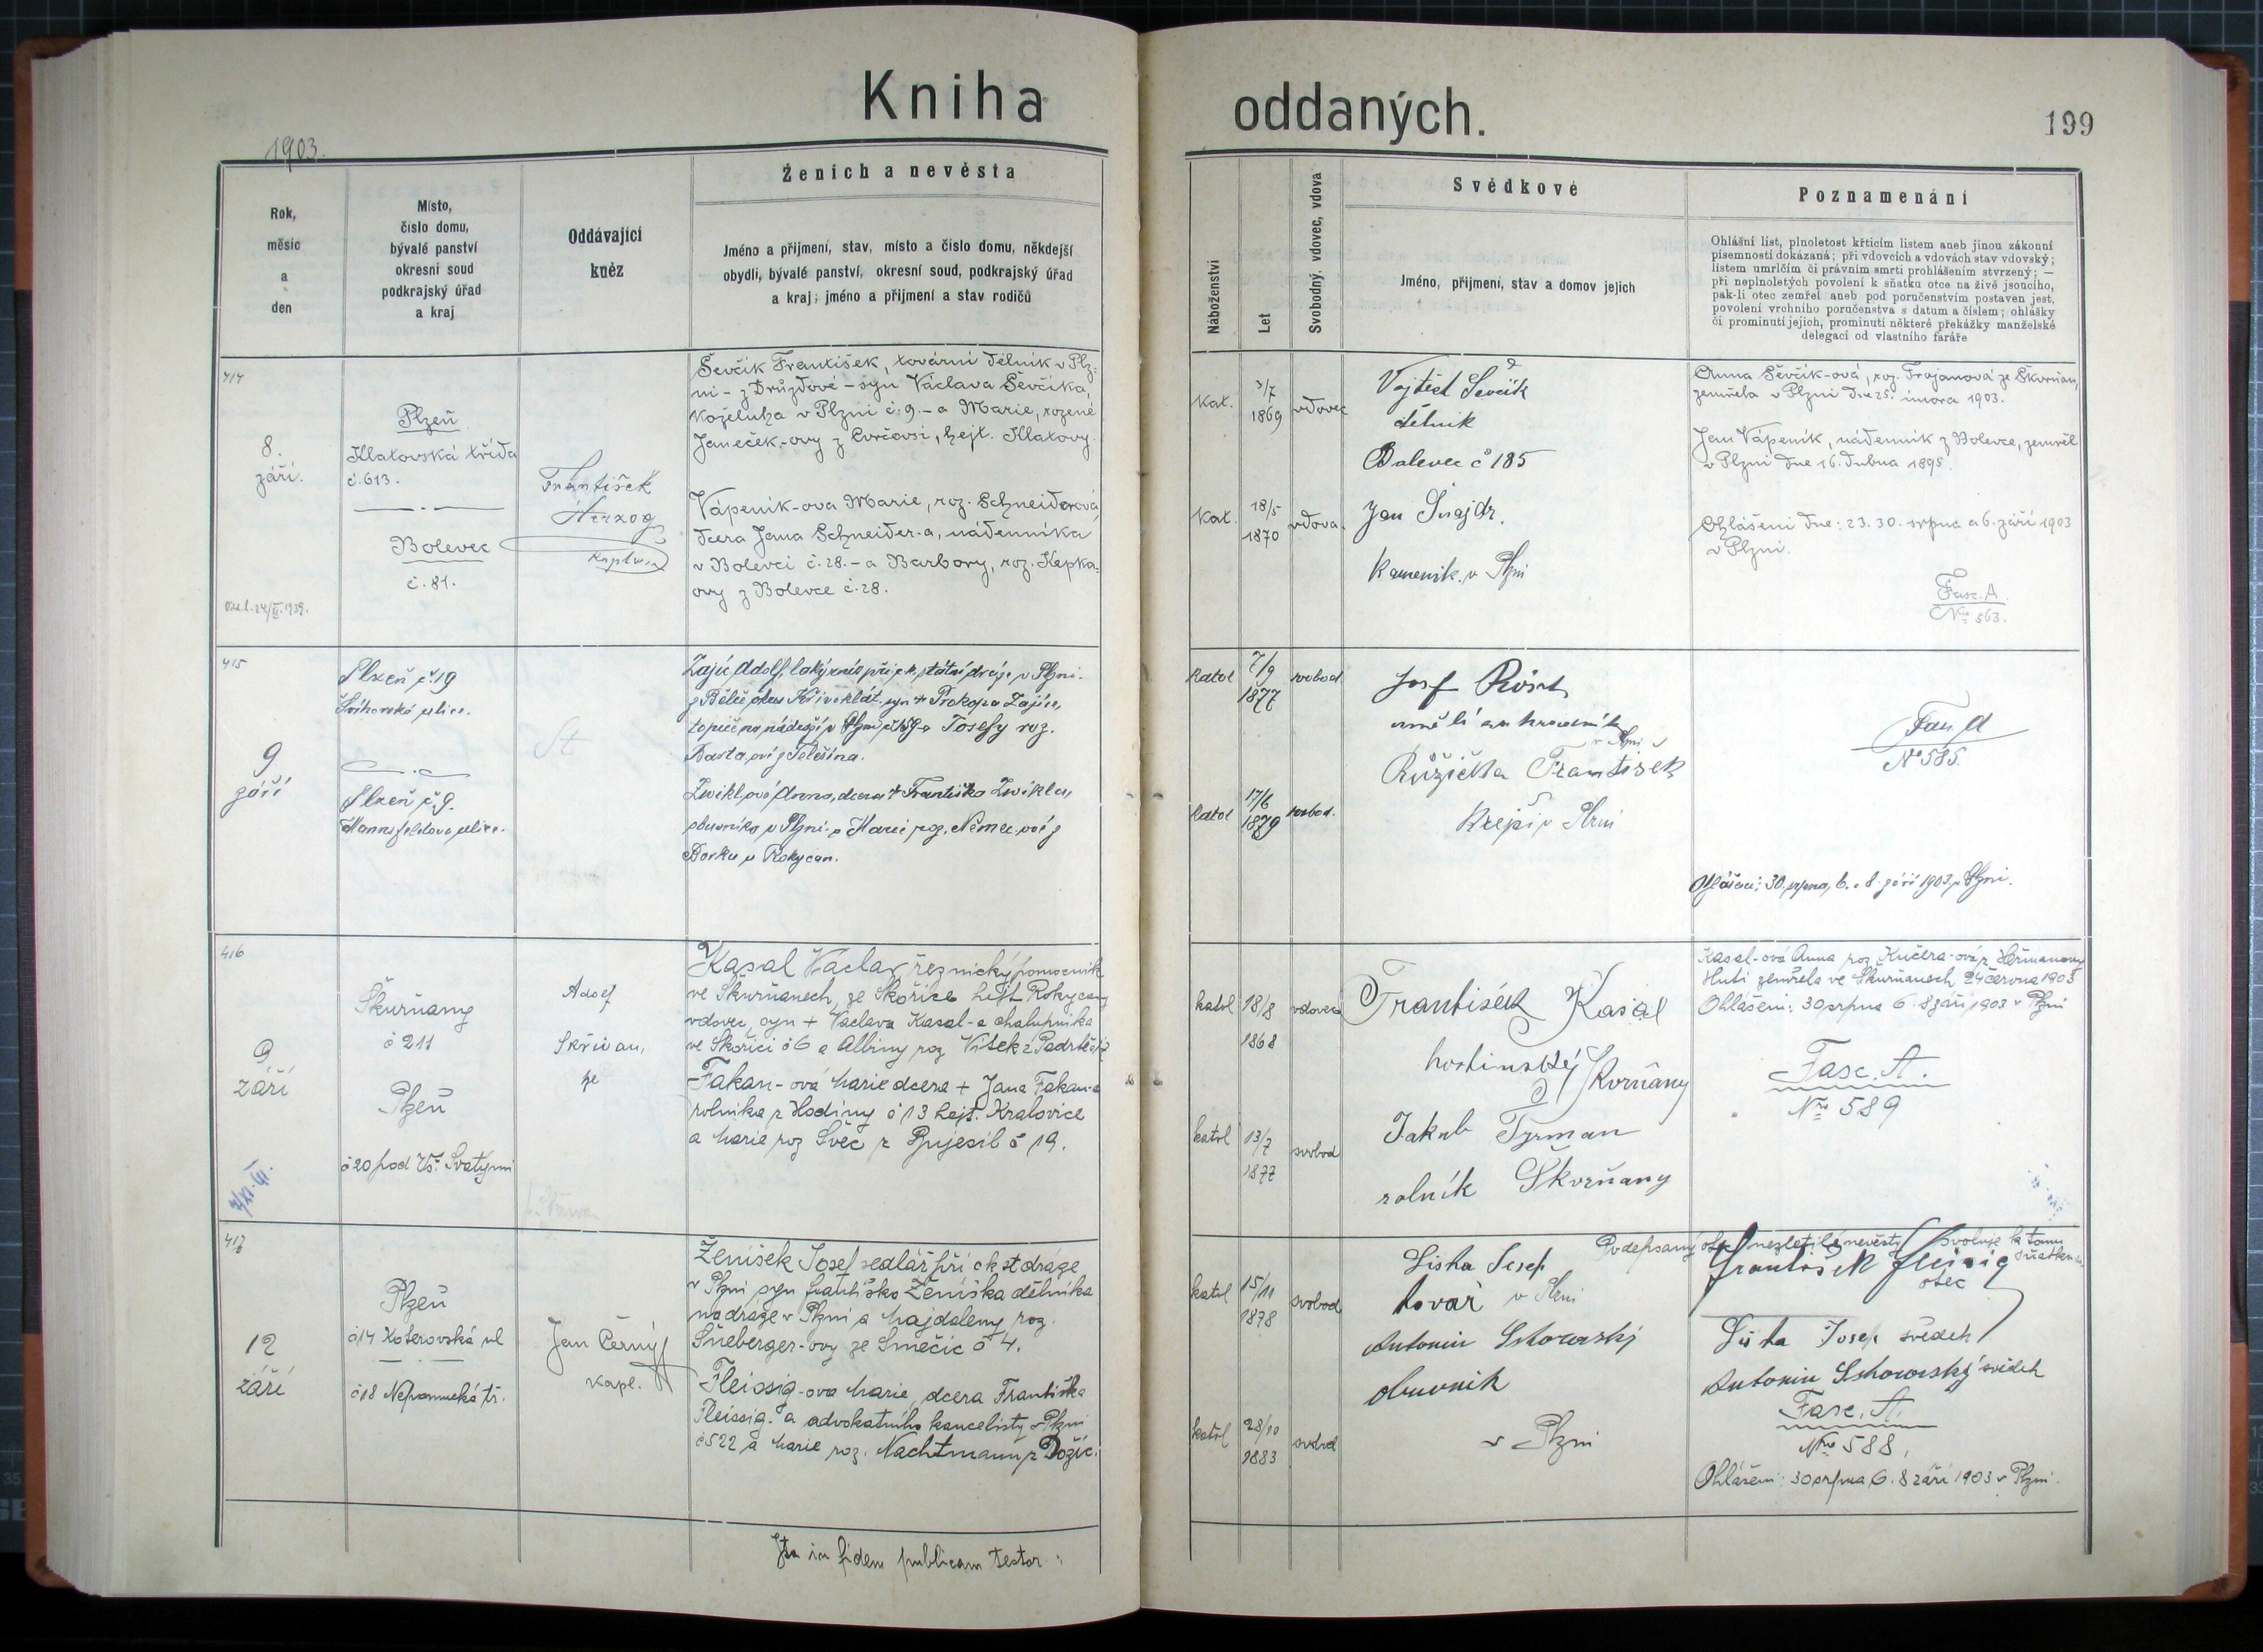 Kniha
oddaných.
199
1903.
Rok,
měsíc
a
den
Místo,
číslo domu,
bývalé panství
okresní soud
podkrajský úřad
a kraj
Oddávající
kněz
Ženich a nevěsta
Jméno a přijmení, stav, místo a číslo domu, někdejší
obydlí, bývalé panství, okresní soud, podkrajský úřad
a kraj; jméno a přijmení a stav rodičů
Náboženství
Let
Svobodný, vdovec, vdova
Svědkové
Jméno, přijmení, stav a domov jejich
Poznamenání
Ohlášní list, plnoletost křticím listem aneb jinou zákonní
písemností dokázaná; při vdovcích a vdovách stav vdovský;
listem umrlčím či právním smrti prohlášením stvrzený; —
při neplnoletých povolení k sňatku otce na živě jsoucího,
pak-li otec zemřel aneb pod poručenstvím postaven jest,
povolení vrchního poručenstva s datum a číslem; ohlášky
či prominutí jejich, prominutí některé překážky manželské
delegací od vlastního faráře
414
8.
září.
Plzeň
Klatovská třída
č. 613.
Bolevec
č. 81.
František
Herzog
kaplan
Ševčík František, tovární dělník v Plz-
ni - z Družďové - syn Václava Ševčíka,
koželuha v Plzni č. 9. - a Marie, rozené
Janeček-ovy z Čvrčovsi, hejt. Klatovy.
Vápeník-ova Marie, roz. Schneiderová,
dcera Jana Schneider-a, nádenníka
v Bolevci č. 28. - a Barbory, roz. Kepka-
ovy z Bolevce č. 28.
kat.
3/7
1869
vdovec
kat.
18/5
1870
vdova.
Vojtěch Ševčík
dělník
Bolevec č 185
Jan Šnajdr.
kameník v Plzni
Anna Ševčík-ová, roz. Trojanová ze Škvrňan,
zemřela v Plzni dne 25. února 1903.
Jan Vápeník, nádenník z Bolevce, zemřel
v Plzni dne 16. dubna 1895.
Ohlášeni dne: 23. 30. srpna a 6. září 1903
v Plzni.
Fasc. A.
Nro 563.
415
9
září
Plzeň č. 19
Plzeň č. 9.
Mannsfeldova ulice.
St
Zajíc Adolf,
syn + Prokopa Zajíce,
Josefy roz.
Zwikl-ová Anna, dcera + Františka Zwikla,
v Plzni a Marie roz.
Borku u Rokycan.
katol
7/9
1877
svobod
katol
17/6
1879
svobod.
Josef
v Plzni
Růžička František
Krejčí v Plzni
Fasc. A
No 585.
Ohlášeni: 30. srpna, 6. a 8. září 1903 v Plzni.
416
9
září
Škvrňany
č 211
Plzeň
č 20 pod Vš. Svatými
Adolf
Skřivan,
Kasal Václav, řeznický pomocník
ve Škvrňanech, ze Skořice hejt Rokycany
vdovec, syn + Václava Kasal-a chalupníka
ve Skořici č 6 a Albiny roz Vítek z Padrtě č 2
Fakan-ová Marie dcera + Jana Fakan-a
rolníka z Hodiny č 13 hejt. Kralovice
a Marie roz Švec z Bujesil č 19.
katol
18/8
1868
vdovec
katol
13/7
1877
svobod
František Kasal
hostinský Škvrňany
Jakub Tyrman
rolník Škvrňany
Kasal-ová Anna roz Kučera-ová z Heřmanovy
Huti zemřela ve Škvrňanech 24 června 1903
Ohlášeni: 30 srpna 6. 8 září 1903 v Plzni
Fasc. A.
Nro 589
417
12
září
Plzeň
č 14 Koterovská ul
č 18 Nepomucká tř.
Jan Černý
kapl.
Ženíšek Josef sedlář při c k st dráze
v Plzni syn Františka Ženíška dělníka
na dráze v Plzni a Majdaleny roz.
Šneberger-ovy ze Smečic č 4.
Fleissig-ova Marie, dcera Františka
Fleissig-a advokatního kancelisty v Plzni
č 522 a Marie roz. Nachtmann z Dožic.
katol
15/11
1878
svobod
katol
28/10
1883
svobod
Liška Josef
tovar v Plzni
Antonín
obuvník
v Plzni
Podepsaný otec nezletilé nevěsty svoluje k tomu
sňatku.
František Fleisig
otec
Liška Josef svědek
Antonín svědek
Fasc. A.
Nro 588.
Ohlášeni: 30 srpna 6. 8 září 1903 v Plzni.
Ita in fidem publicam testor: